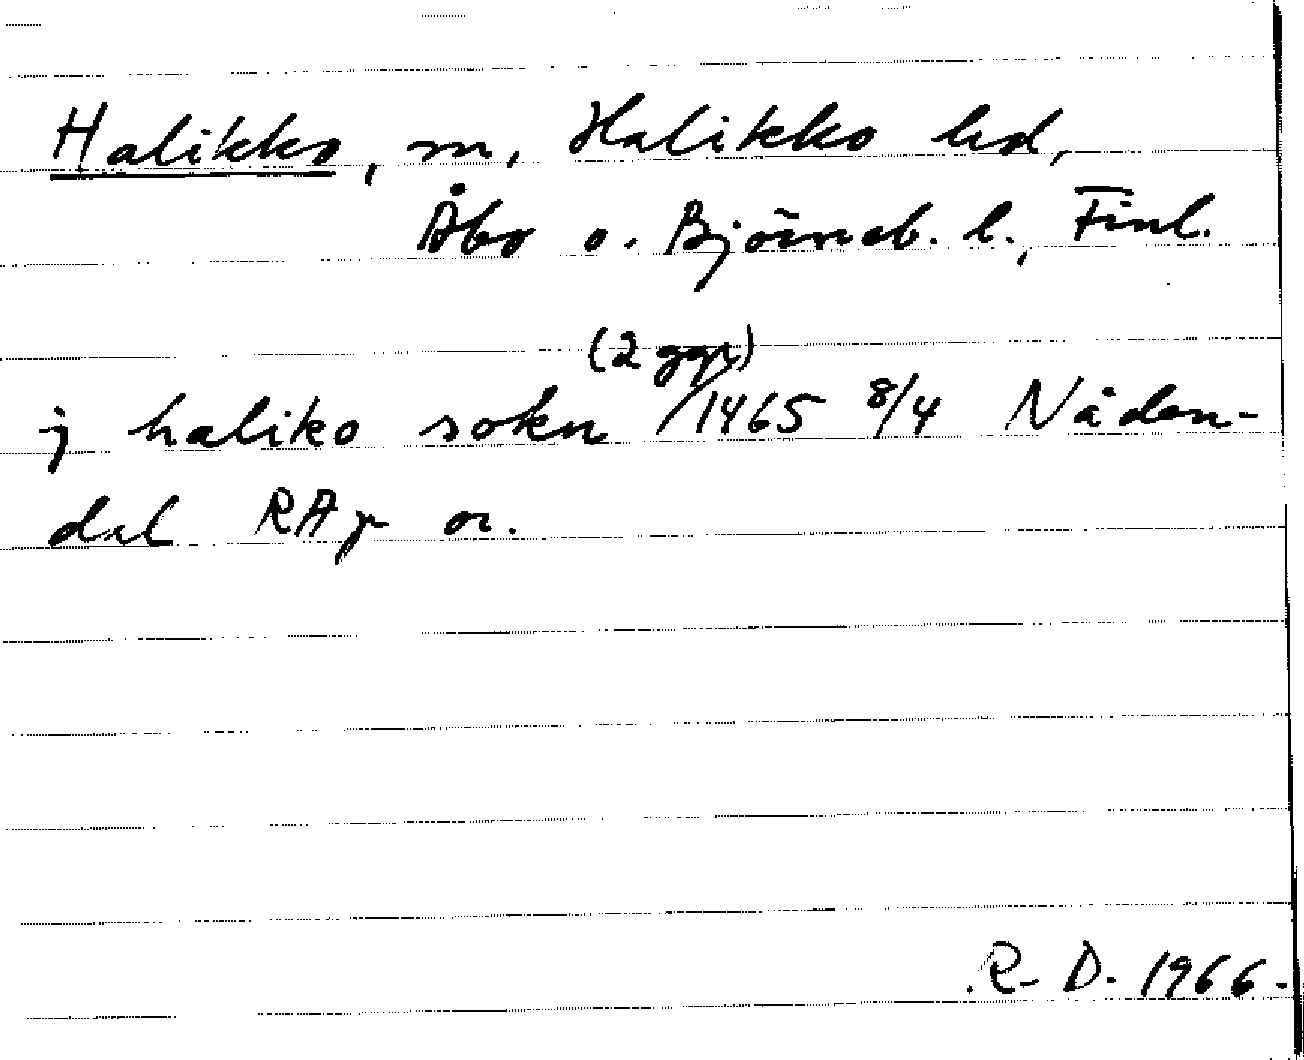 Halikko, sn, Halikko hd,
Åbo o. Björneb. l., Finl.
(2 ggr)
j haliko sokn /1465 8/4 Nåden-
dal RAp or.
R. D. 1966.